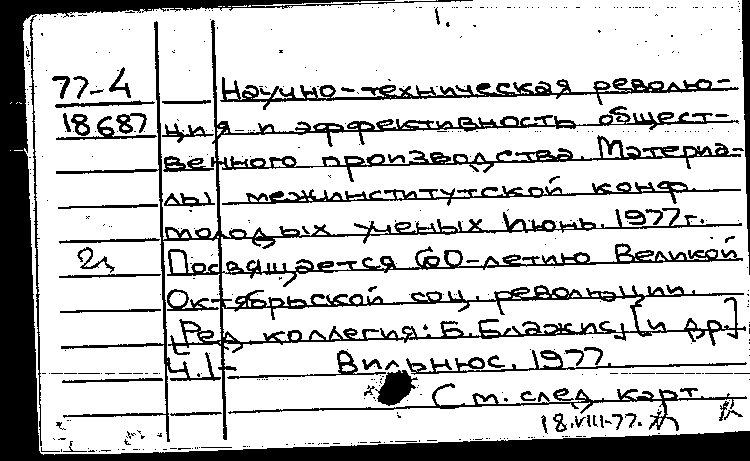 1.
77-4 Научно-техническая револю-
18687 ция и эффективность общест-
венного производства. Материа-
лы межинститутской конф.
молодых ученых Июнь. 1977г.
2 Посвящается 60-летию Великой
Октябрьской соц. революции.
[Ред коллегия: Б. Блажис, [и др.]
Ч.1- Вильнюс. 1977.
См. след. карт.
18.VIII-77.